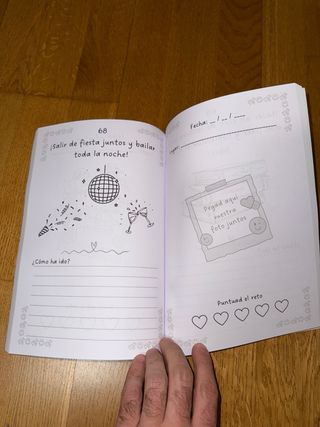 68
¡Salir de fiesta juntos y bailar
toda la noche!
¿Cómo ha ido?
Fecha: __ / __ / ____
Lugar:
Pegad aquí
vuestra
foto juntos
Puntuad el reto